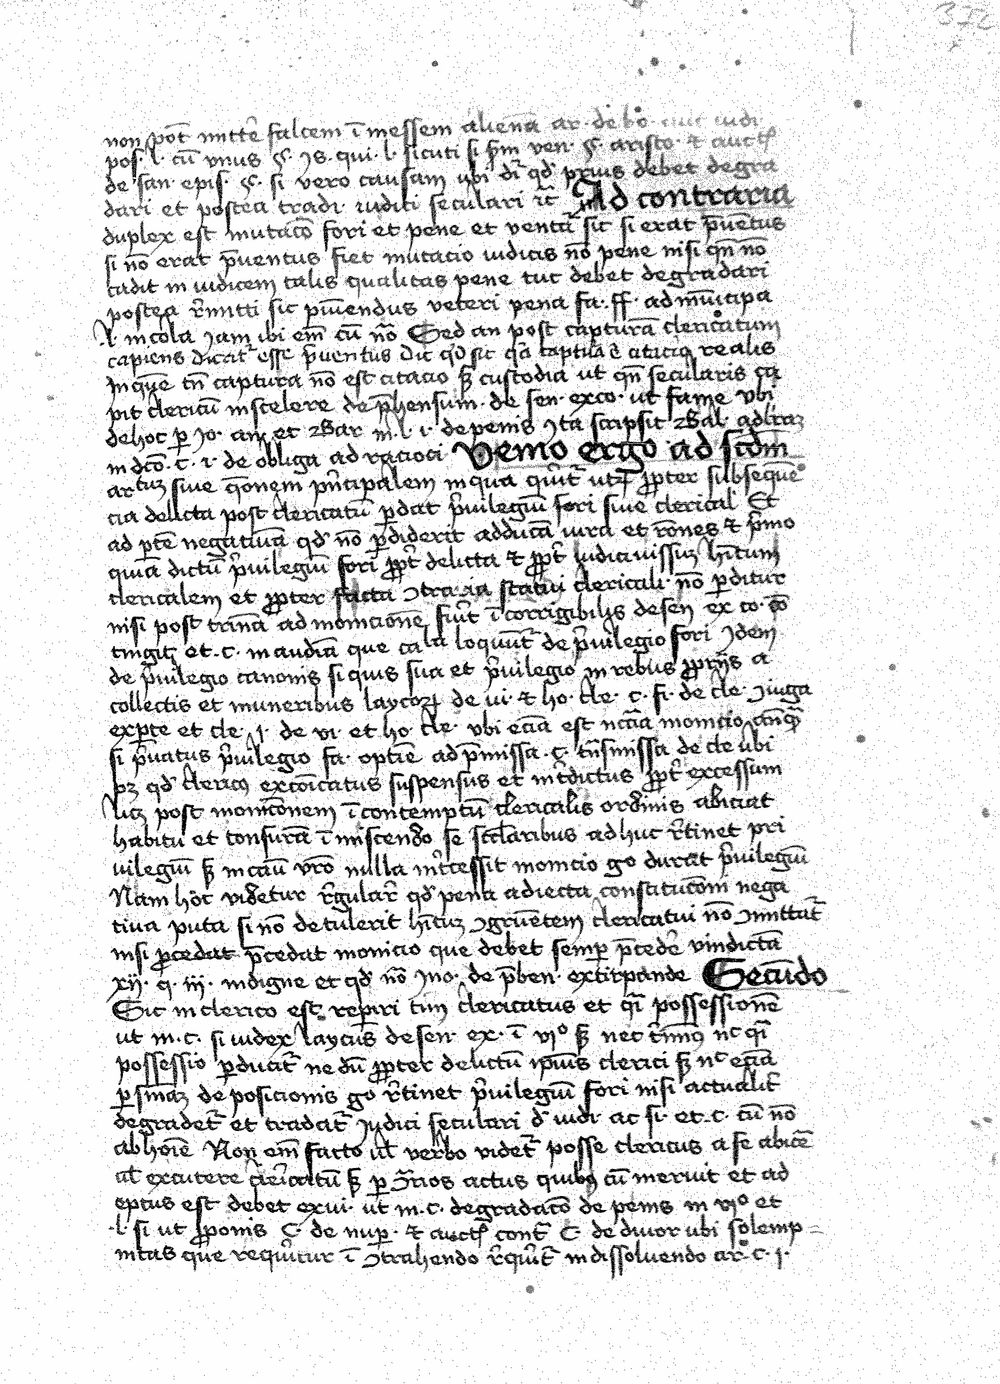 non pot̄ mittē falcem ī messem aliena ar· de bo· iudi·
pos· l· cū vnus ꝯ· Is· qui· l· sicuti si ꝯm ven· ꝯ· aristo· et auctꝭ
de· san· epis· ꝯ· si vero causam ubi dī qđ prius debet degra
dari et postea tradi iudici seculari ꝛc̄ Ad contraria
duplex est mutacō fori et pene et ventū sit si erat p̄uentus
si nō erat p̄uentus fiet mutacio iudicis nō pene nisi qn̄ nō
cadit in iudicem talis qualitas pene tūc debet degradari
postea r̄mitti sic puniendus veteri pena fa· ff· ad mūicipa
l· incola Iam ibi em̄ cū n̄o Sed an post capturā clericatum
capiens dicat̄ esse p̄uentus dic qđ sit qa captura ē citacio realis
Inquē tn̄ captura nō est citacio sꝫ custodia ut qn̄ secularis ca
pit clericū in scelere dep̄hensum· de sen· exco· ut fame vbi
de hoc ꝑ Jo· an· et Bar in· l· i· de penis Ita scripsit Bal· ad
in dco· C· i· de obliga ad racioci Venio ergo ad scdm̄
artꝫ siue qōnem pn̄cipalem in qua querit̄ utꝝ ꝓpter subsequē
cia delicta post clericatū ꝑdat p̄uilegiū fori siue clerical̄ Et
ad ptē negatiuā qđ nō ꝑdiderit adducā iura et rōnes et p̄mo
quia dictū p̄uilegiū fori ꝓpt̄ delicta et ꝓpt̄ hītum
clericalem et ꝓpter facta ꝯtraria statui clericali nō ꝑditur
nisi post trinā ad monicionē fiūt ī corrigibilis de sen ex co· cō
tingit et· C· in audiā que cala loquūt̄ de p̄uilegio fori Idem
de p̄uilegio canonis si quis sua et p̄uilegio in rebus ꝓprijs a
collectis et muneribus laycoꝝ de ui· et ho· cle· C· fi· de cle· Iuga
exꝑte et cle· I· de vi· et ho· cle· vbi eciā est nc̄cia monicio anqꝫ
si p̄uatus p̄uilegio fa· optīe ad p̄missa· C· tn̄smissa de cle ubi
pꝫ qđ clericꝰ excōicatus suspensus et int̄dictus ꝓpt̄ excessum
licꝫ post monicōnem ī contemptū clericalis ordinis abiciat
habitū et tonsurā ī miscendo se sclaribus ad huc r̄tinet pri
uilegiū sꝫ in casū vr̄o nulla int̄cessit monicio go durat p̄uilegiū
Nam hoc videtur r̄gular̄ qđ pena adiecta constitucōni nega
tiua puta si nō detulerit hītuꝫ ꝯgruētem clericatui nō ꝯmittat̄
nisi p̄cedat p̄cedat monicio que debet semꝑ p̄cedē vindictā
xij· q· iij· indigne et qđ nō Ino· de p̄ben· extirpande Secūdo
Sic in clerico est reperiri tim clericatus et qi possessionē
ut in· C· si iudex laycus de sen· ex· ī vjº sꝫ nec nc qi
possessio ꝑducit̄ nedū ꝓpter delictū ipsius clerici sꝫ nc eciā
ꝑ smaꝫ deposicionis go r̄tinet p̄uilegiū fori nisi actualit̄
degradet̄ et tradat̄ Iudici seculari đ iudi ac si· et· C· cū nō
ab hoīe Non em̄ facto ul̄ verbo videt̄ posse clericus a se abicē
ul̄ excutere clericatū sꝫ ꝑ ꝯrios actus quibꝰ cū meruit et ad
eptus est debet exui· ut in· C· degradacō de penis in vjº et
l· si ut ꝓponis C· de nup· et auctꝭ cont̄ C· de diuor ubi solemp
nitas que requiritur ī ꝯtrahendo r̄quirit̄ in dissoluendo ar· C· i·